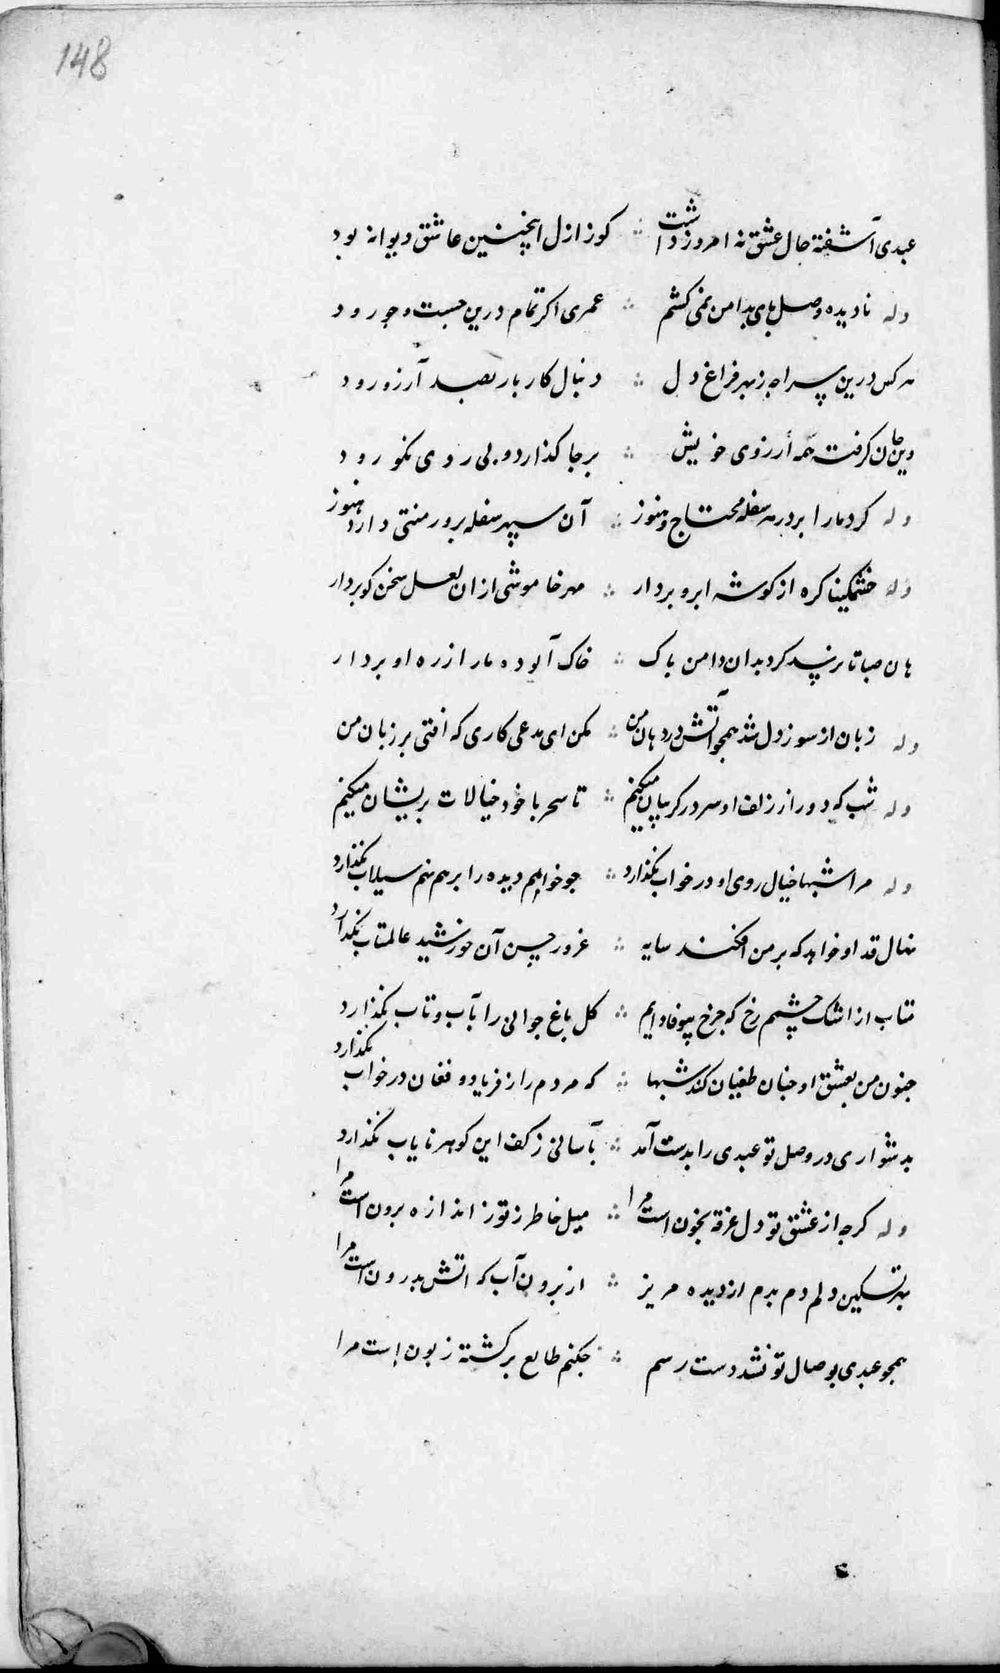 148
عبدی آشفته حال عشق نه امروز داشت ∴ کوز ازل اینچنین عاشق دیوانه بود
وله نادیده وصل پای بدامن نمی کشم ∴ عمری اکر تمام درین جست و جو رود
هر کس درین سراچه ز بهر فراغ دل ∴ دنبال کار بار بصد آرزو رود
وین جان کرفت همه آرزوی خویش ∴ بر جا کذارد و پی روی نکو رود
وله کرد ما را بر در هر سفله محتاج و هنوز ∴ آن سپهر سفله پرور منتی دارد هنوز
وله خشمکینا کره از کوشه ابرو بردار ∴ مهر خاموشی از ان لعل سخن کو بردار
هان صبا تا نرسد کرد بدان دامن پاک ∴ خاک آلوده ما را ز ره او بردار
وله زبان از سوز دل شد همچو آتش در دهان من ∴ مکن ای مدعی کاری که افتی بر زبان من
وله شب که دور از زلف او سر در کریبان میکنم ∴ تا سحر با خود خیالات پریشان میکنم
وله مرا شبها خیال روی او در خواب نکذارد ∴ چو خواهم دیده را بر هم نهم سیلاب نکذارد
نهال قد او خواهد که بر من افکند سایه ∴ غرور حسن آن خورشید عالمتاب نکذارد
متاب از اشک چشمم رخ که چرخ بیوفا دایم ∴ کل باغ جوانی را بآب و تاب نکذارد
جنون من بعشق او چنان طغیان کند شبها ∴ که مردم را ز فریاد و فغان در خواب نکذارد
بدشواری در وصل تو عبدی را بدست آمد ∴ بآسانی ز کف این کوهر نایاب نکذارد
وله کرچه از عشق تو دل غرقه بخون است مرا ∴ میل خاطر ز تو ز اندازه برون است مرا
بهر تسکین دلم دم بدم از دیده مریز ∴ از برون آب که اتش بدرون است مرا
همچو عبدی بوصال تو نشد دست رسم ∴ چکنم طالع برکشته زبون است مرا